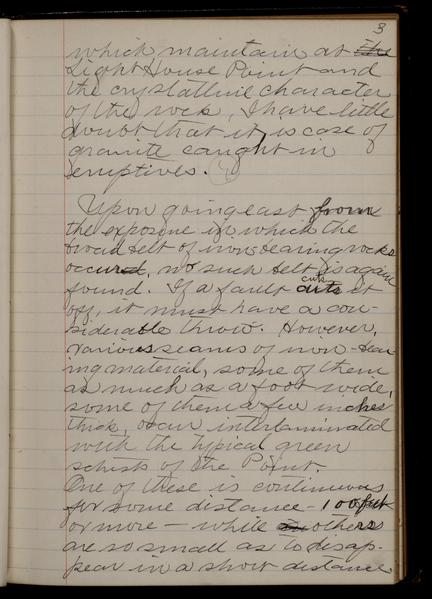 3
which maintain at the
Light House Point and
the crystalline character
of the rock, I have little
doubt that it is case of
granite caught in
eruptives.
Upon going east from
the exposure in which the
broad belt of iron-bearing rocks
occured, no such belt is again
found. If a fault cuts it
off, it must have a con-
siderable throw. However,
various seams of iron-bear-
ing material, some of them
as much as a foot wide,
some of them a few inches
thick, occur interlaminated
with the typical green
schists of the Point.
One of these is continuous
for some distance - 100 feet
or more - while others
are so small as to disap-
pear in a short distance